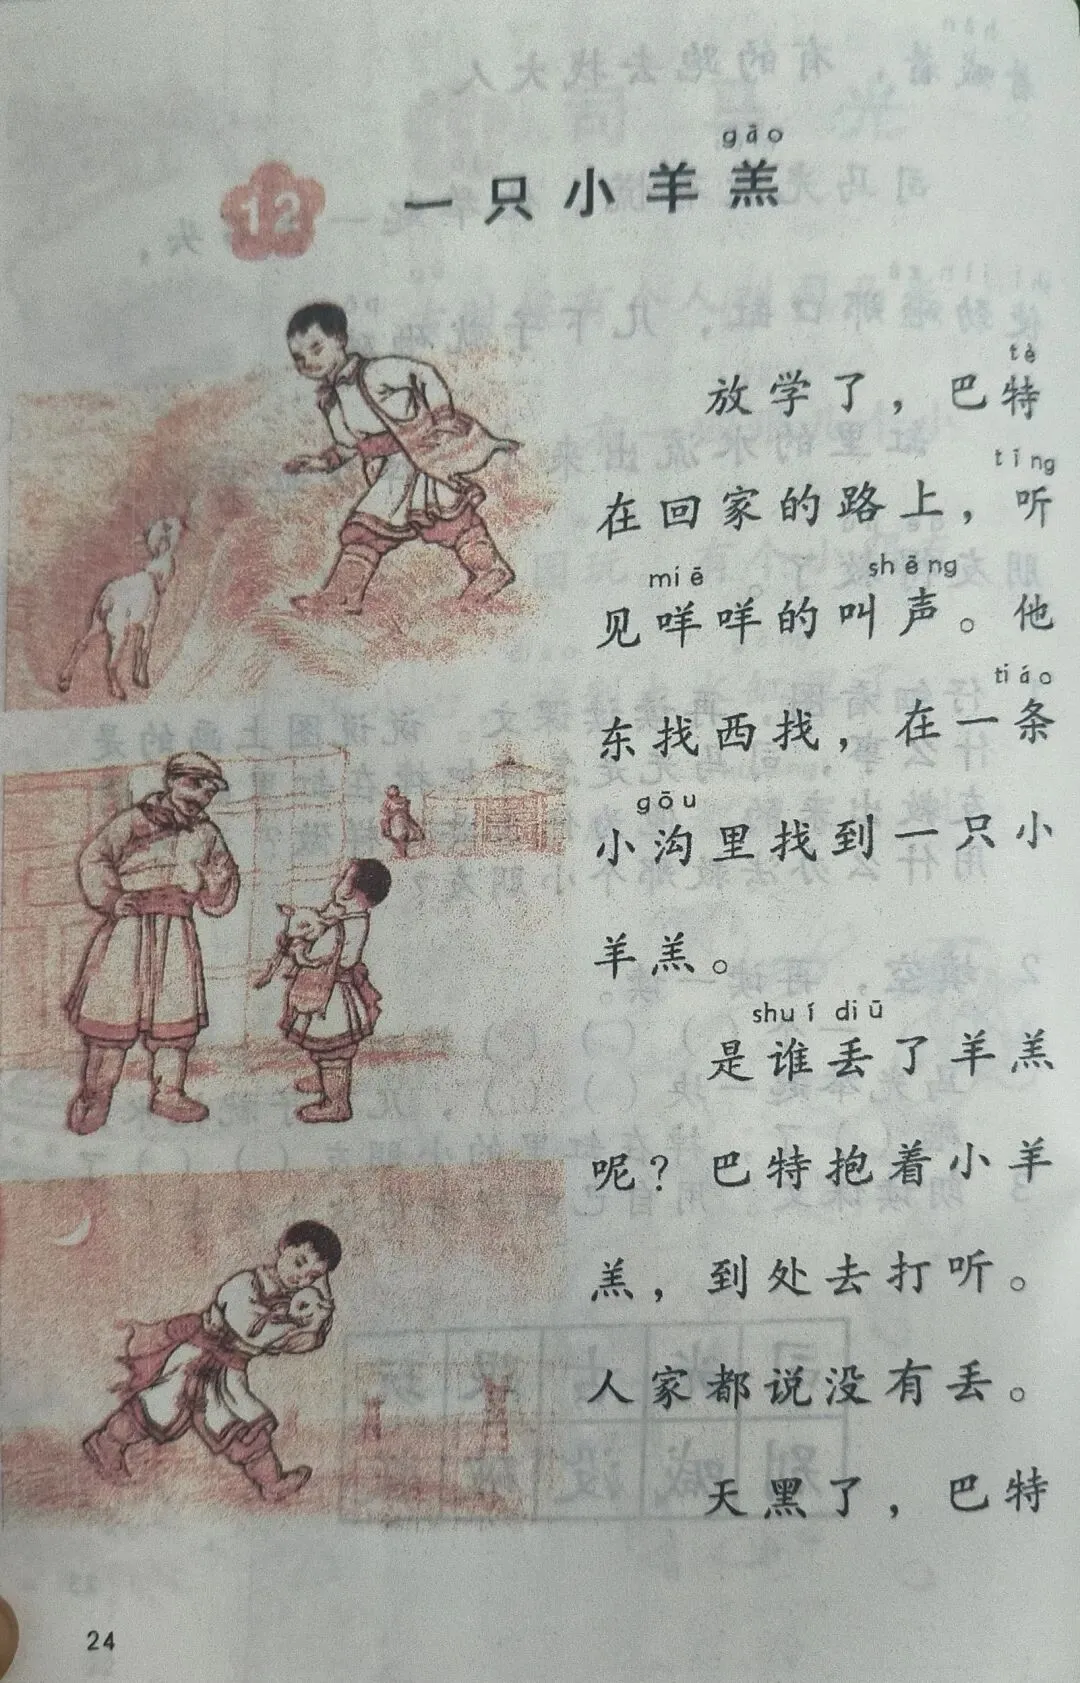 gāo
12 一只小羊羔
tè
放学了，巴特
tīng
在回家的路上，听
miē shēng
见咩咩的叫声。他
tiáo
东找西找，在一条
gōu
小沟里找到一只小
羊羔。
shuí diū
是谁丢了羊羔
呢？巴特抱着小羊
羔，到处去打听。
人家都说没有丢。
天黑了，巴特
24